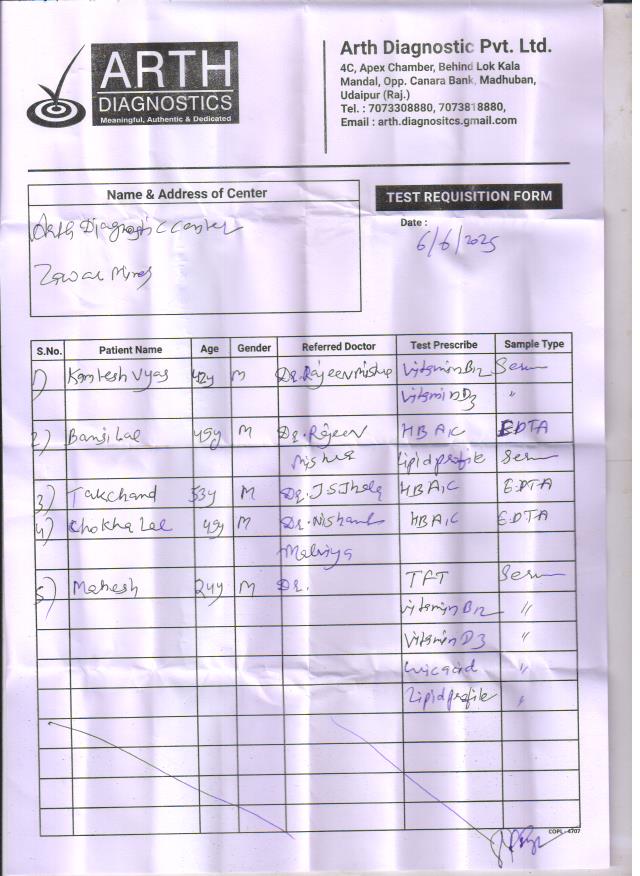 ARTH
DIAGNOSTICS
Meaningful, Authentic & Dedicated
Arth Diagnostic Pvt. Ltd.
4C, Apex Chamber, Behind Lok Kala
Mandal, Opp. Canara Bank, Madhuban,
Udaipur (Raj.)
Tel. : 7073308880, 7073818880,
Email : arth.diagnositcs.gmail.com
Name & Address of Center
TEST REQUISITION FORM
Arth Diagnostic Center
Zawar Mines
Date :
6/6/2025
S.No. Patient Name Age Gender Referred Doctor Test Prescribe Sample Type
1) Kamlesh Vyas 42y M Dr. Rajeev Mishra Vitamin B12 Serum
Vitamin D3 "
2) Bansi Lal 45y M Dr. Rajeev HBA1C EDTA
Mishra Lipid profile Serum
3) Takchand 53y M Dr. JS Jhala HBA1C EDTA
4) Chokha Lal 49 M Dr. Nishant HBA1C EDTA
Malviya
5) Mahesh 24y M Dr. TFT Serum
Vitamin B12 "
Vitamin D3 "
Uric acid "
Lipid profile "
COPL - 4707